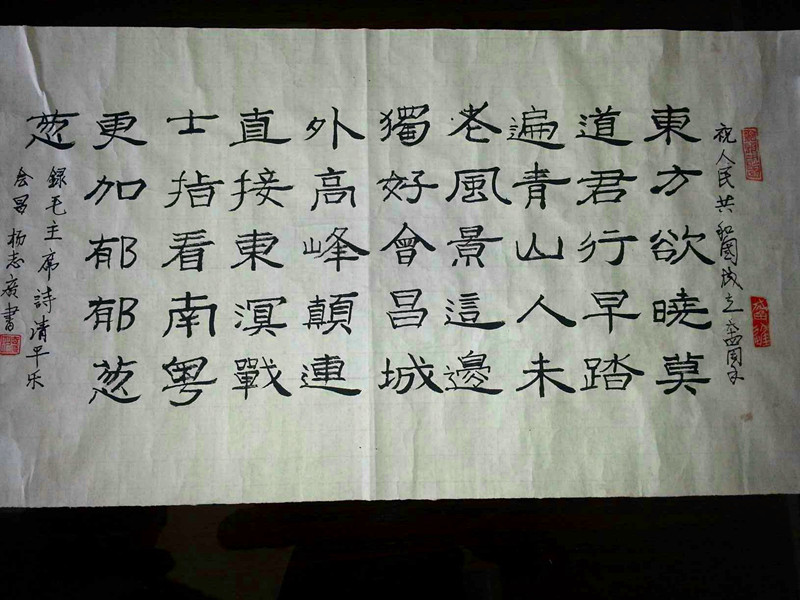 祝人民共和國成立六十四周年
東方欲曉莫
道君行早踏
遍青山人未
老風景這邊
獨好會昌城
外高峰顛連
直接東溟戰
士指看南粵
更加郁郁葱
葱
録毛主席詩清平乐
会昌杨志廣書